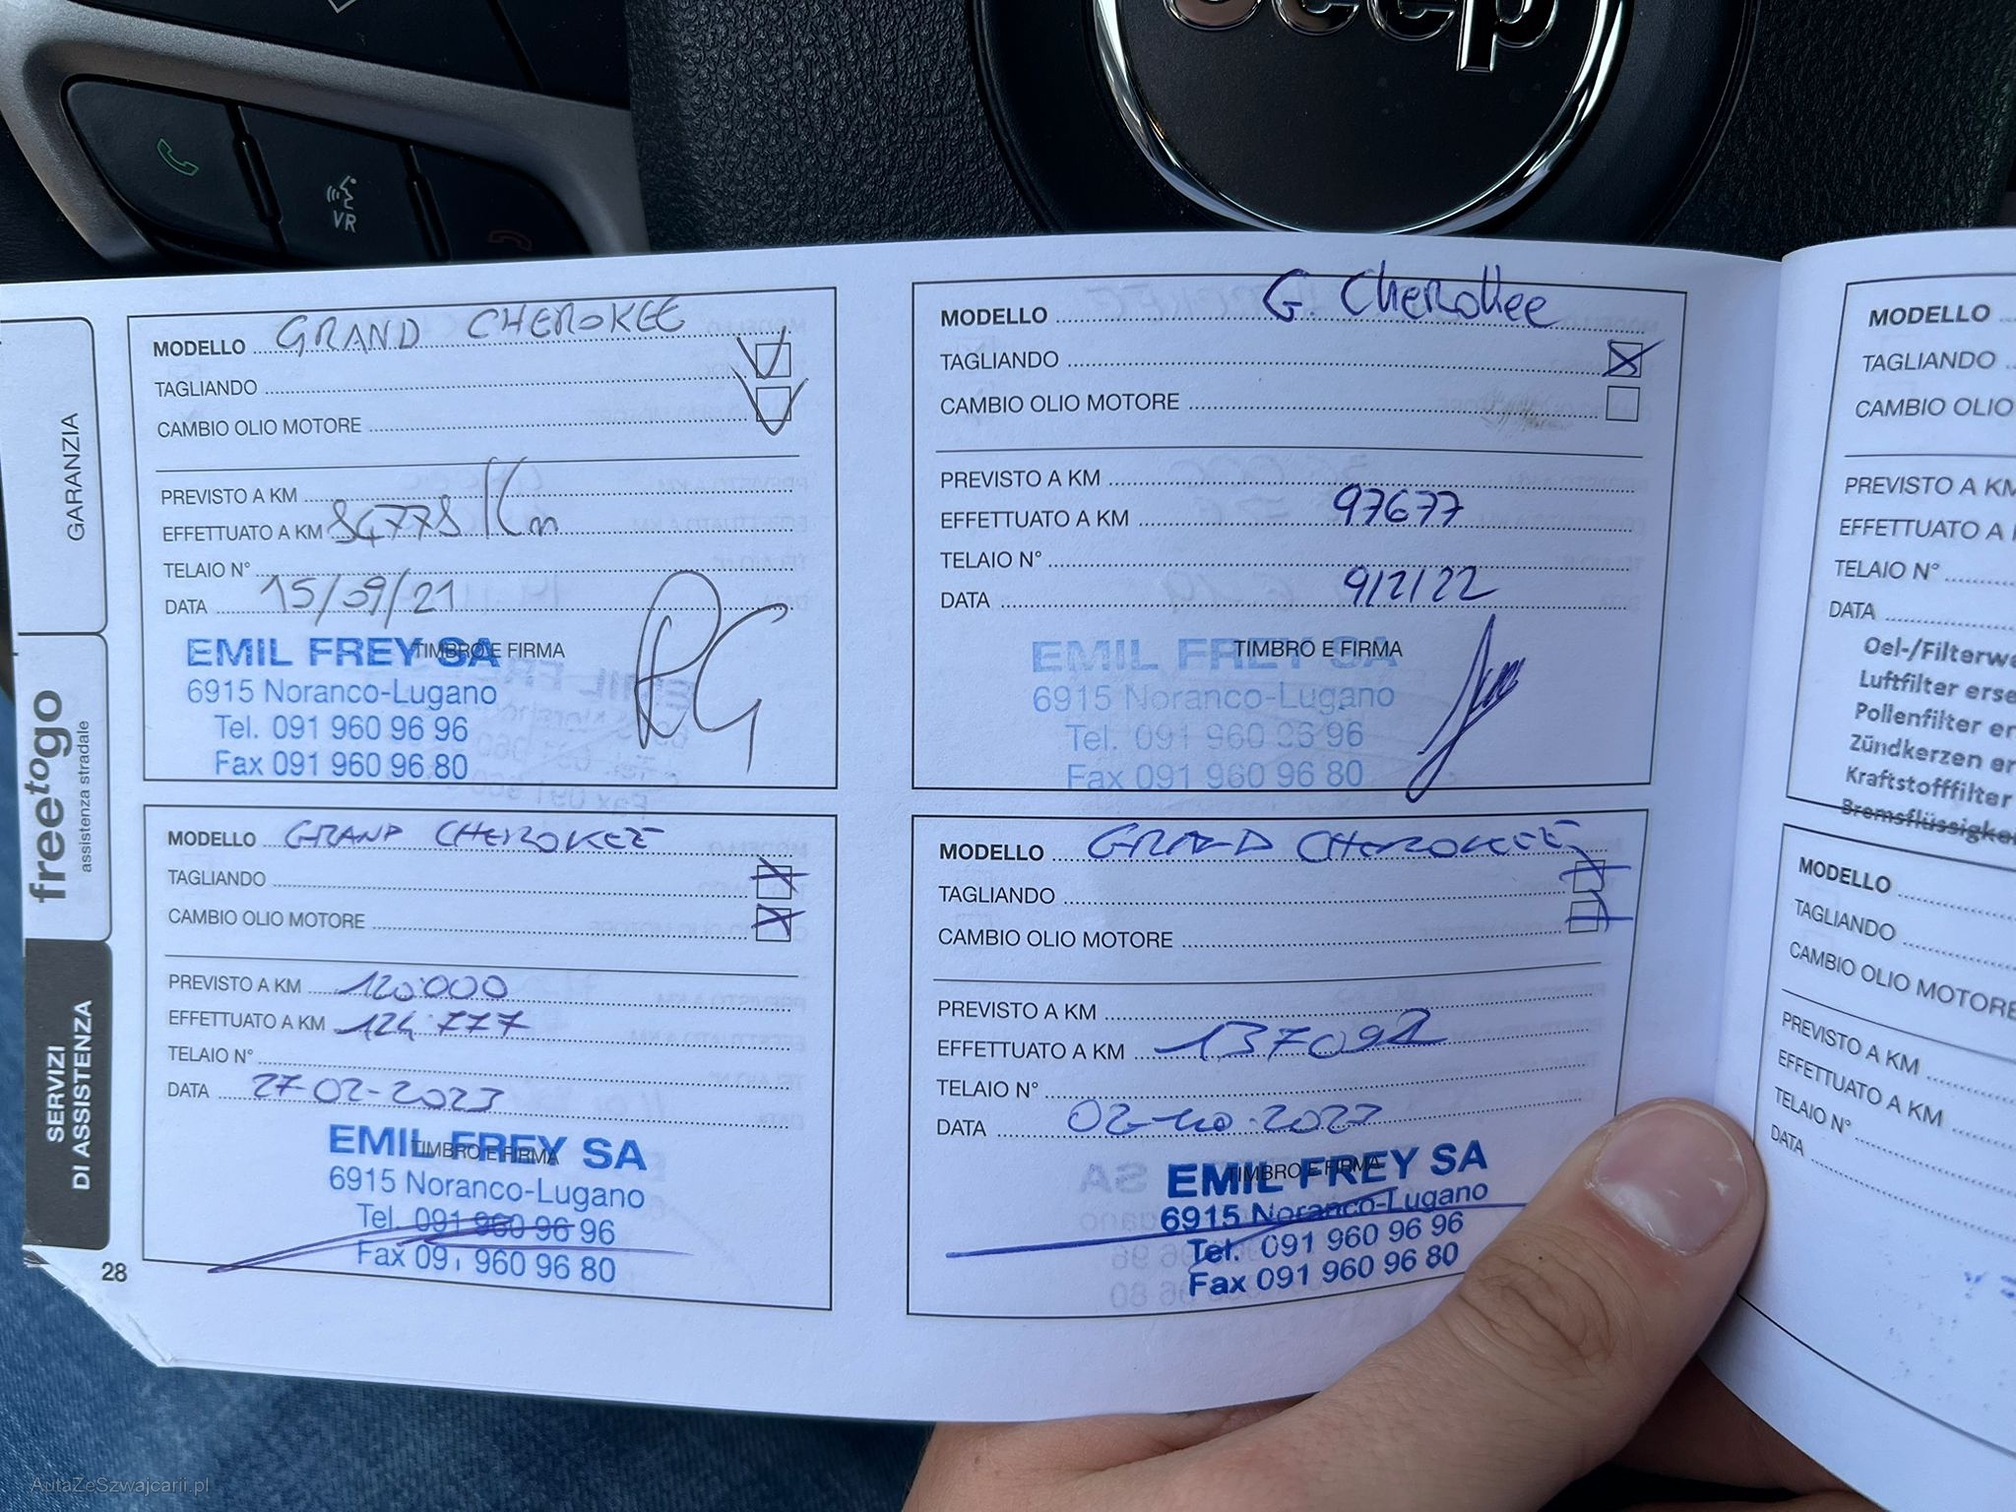 Jeep
VR
GARANZIA
freetogo
assistenza stradale
SERVIZI
DI ASSISTENZA
MODELLO GRAND CHEROKEE
TAGLIANDO
CAMBIO OLIO MOTORE
PREVISTO A KM
EFFETTUATO A KM 84778 Km
TELAIO N°
DATA 15/09/21
TIMBRO E FIRMA
EMIL FREY SA
6915 Noranco-Lugano
Tel. 091 960 96 96
Fax 091 960 96 80
MODELLO G. Cherokee
TAGLIANDO
CAMBIO OLIO MOTORE
PREVISTO A KM
EFFETTUATO A KM 97677
TELAIO N°
DATA 9/2/22
TIMBRO E FIRMA
EMIL FREY SA
6915 Noranco-Lugano
Tel. 091 960 96 96
Fax 091 960 96 80
MODELLO GRAND CHEROKEE
TAGLIANDO
CAMBIO OLIO MOTORE
PREVISTO A KM 120.000
EFFETTUATO A KM 124.777
TELAIO N°
DATA 27-02-2023
TIMBRO E FIRMA
EMIL FREY SA
6915 Noranco-Lugano
Tel. 091 960 96 96
Fax 091 960 96 80
28
MODELLO GRAND CHEROKEE
TAGLIANDO
CAMBIO OLIO MOTORE
PREVISTO A KM
EFFETTUATO A KM 137092
TELAIO N°
DATA 02-10-2023
TIMBRO E FIRMA
EMIL FREY SA
6915 Noranco-Lugano
Tel. 091 960 96 96
Fax 091 960 96 80
MODELLO
TAGLIANDO
CAMBIO OLIO
PREVISTO A KM
EFFETTUATO A
TELAIO N°
DATA
Oel-/Filterwe
Luftfilter erse
Pollenfilter er
Zündkerzen er
Kraftstofffilter
Bremsflüssigke
MODELLO
TAGLIANDO
CAMBIO OLIO MOTORE
PREVISTO A KM
EFFETTUATO A KM
TELAIO N°
DATA
AutaZeSzwajcarii.pl